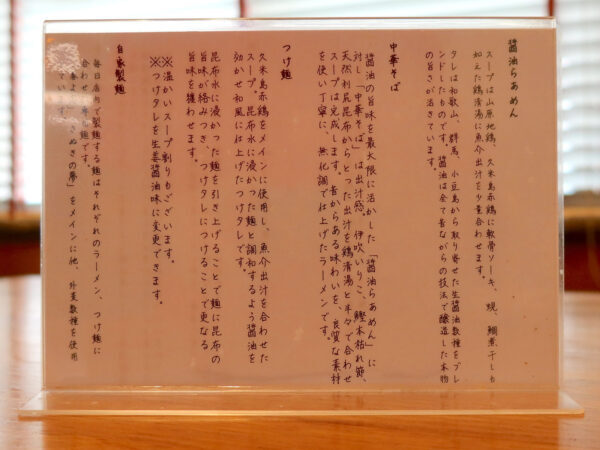 醤油らあめん
スープは山原地鶏、久米島赤鶏に軟骨ソーキ、蜆、鯛煮干しも
加えた鶏清湯に魚介出汁を少量合わせます。
タレは和歌山、群馬、小豆島から取り寄せた生醤油数種をブレ
ンドしたものです。醤油は全て昔ながらの技法で醸造した本物
の旨さが活きています。
中華そば
醤油の旨味を最大限に活かした「醤油らあめん」に
対し「中華そば」は出汁感。伊吹いりこ、鰹本枯れ節、
天然利尻昆布からとった出汁を鶏清湯と半々で合わせ
スープは完成します。昔からある味わいを、良質な素材
を使い丁寧に、無化調で仕上げたラーメンです。
つけ麺
久米島赤鶏をメインに使用し、魚介出汁を合わせた
スープ。昆布水に浸かった麺と調和するよう醤油を
効かせ和風に仕上げたつけタレです。
昆布水に浸かった麺を引き上げることで麺に昆布の
旨味が絡みつき、つけタレにつけることで更なる
旨味を纏わせます。
※温かいスープ割りもございます。
※つけタレを生姜醤油味に変更できます。
自家製麺
毎日店内で製麺する麺はそれぞれのラーメン、つけ麺に
合わせた麺です。
「春よ」「さぬきの夢」をメインに他、外麦数種を使用
しています。